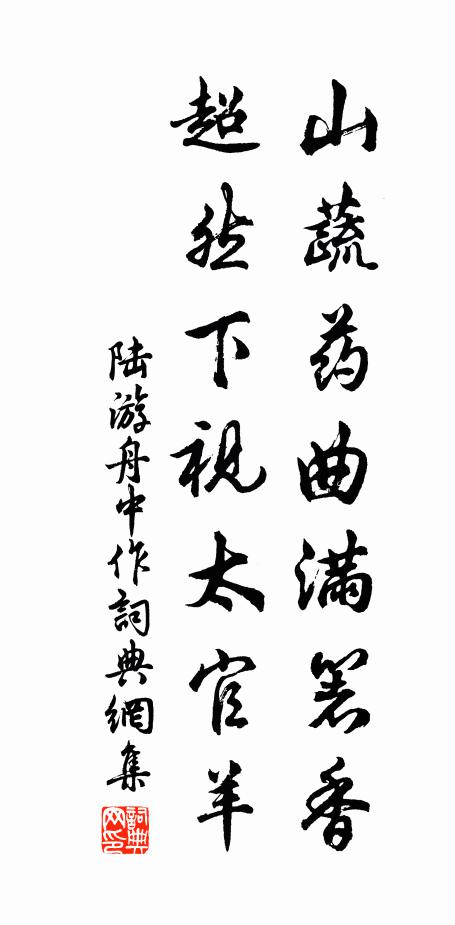 山蔬药曲满箸香
超然下視太官羊
陆游舟中作詞典網集
詞典网印